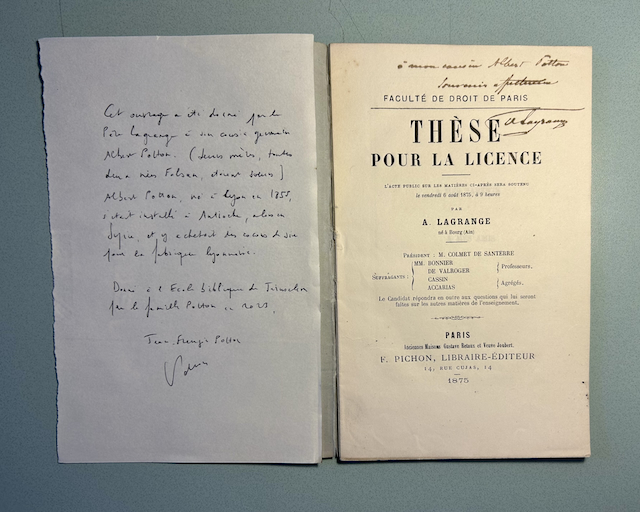 Cet ouvrage a été donné par le
Père Lagrange à son cousin germain
Albert Potton. (Leurs mères, toutes
deux nées Falsan, étaient sœurs)
Albert Potton, né à Lyon en 1855,
s'était installé à Antioche, alors en
Syrie, et y achetait des cocons de soie
pour la fabrique lyonnaise.
Donné à l'Ecole biblique de Jérusalem
par la famille Potton en
Jean-François Potton
à mon cousin Albert Potton
Souvenir affectueux
ALagrange
FACULTÉ DE DROIT DE PARIS
THÈSE
POUR LA LICENCE
L'ACTE PUBLIC SUR LES MATIÈRES CI-APRÈS SERA SOUTENU
le vendredi 6 août 1875, à 9 heures
PAR
A. LAGRANGE
né à Bourg (Ain)
PRÉSIDENT : M. COLMET DE SANTERRE
SUFFRAGANTS :
MM. BONNIER
DE VALROGER
CASSIN
ACCARIAS
Professeurs,
Agrégés,
Le Candidat répondra en outre aux questions qui lui seront
faites sur les autres matières de l'enseignement.
PARIS
Anciennes Maisons Gustave Retaux et Veuve Joubert.
F. PICHON, LIBRAIRE-ÉDITEUR
14, RUE CUJAS, 14
1875